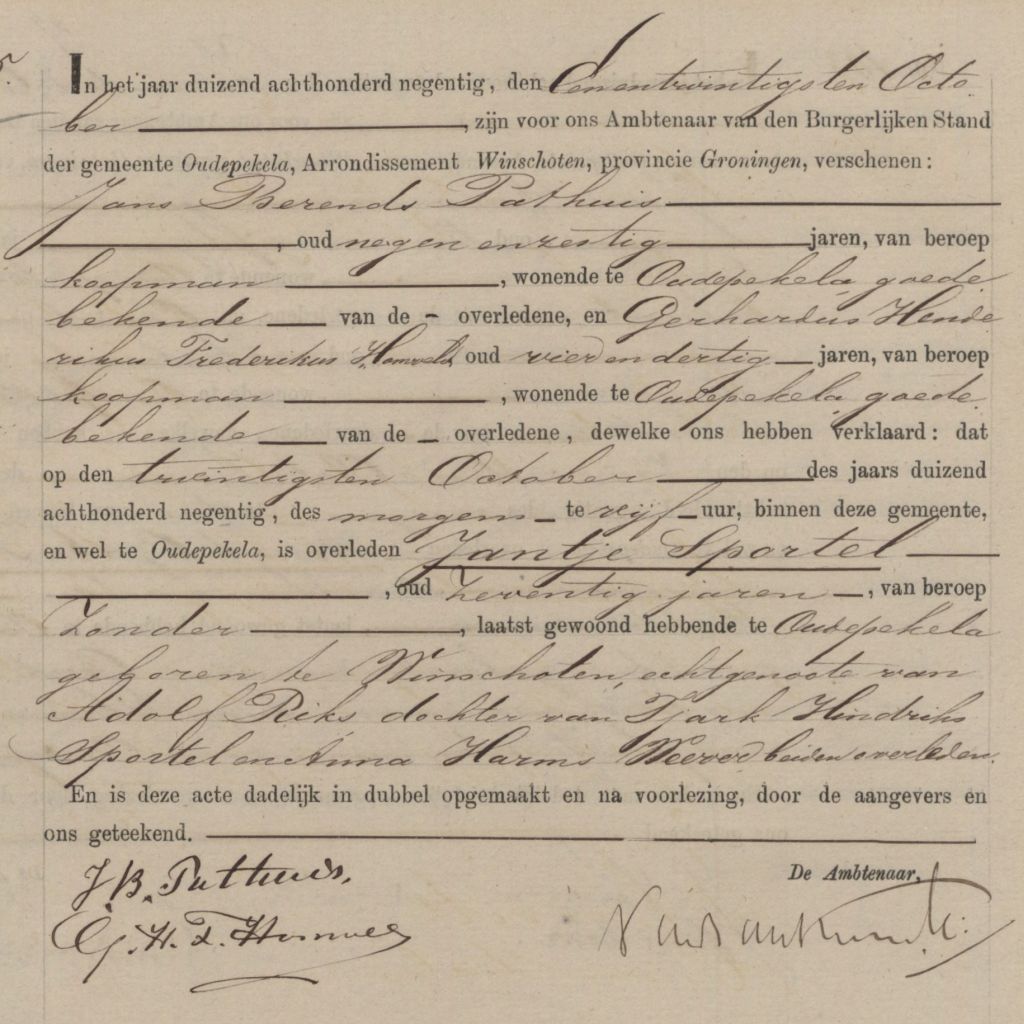 In het jaar duizend achthonderd negentig, den Eenentwintigsten Octo
ber, zijn voor ons Ambtenaar van den Burgerlijken Stand
der gemeente Oudepekela, Arrondissement Winschoten, provincie Groningen, verschenen:
Jans Berends Pathuis
, oud negen en zestig jaren, van beroep
koopman, wonende te Oudepekela, goede
bekende van de - overledene, en Gerhardus Hende
rikus Frederikus oud vier en dertig jaren, van beroep
koopman, wonende te Oudepekela, goede
bekende van de - overledene, dewelke ons hebben verklaard: dat
op den twintigsten October des jaars duizend
achthonderd negentig, des morgens te vijf uur, binnen deze gemeente,
en wel te Oudepekela, is overleden Jantje Sportel
, oud Zeventig jaren, van beroep
Zonder, laatst gewoond hebbende te Oudepekela
geboren te Winschoten, echtgenoote van
Adolf Riks dochter van Tjark Hindriks
Sportel en Anna Harms Weever beiden overleden.
En is deze acte dadelijk in dubbel opgemaakt en na voorlezing, door de aangevers en
ons geteekend.
J. B. Pathuis.
De Ambtenaar,
G. H. F.